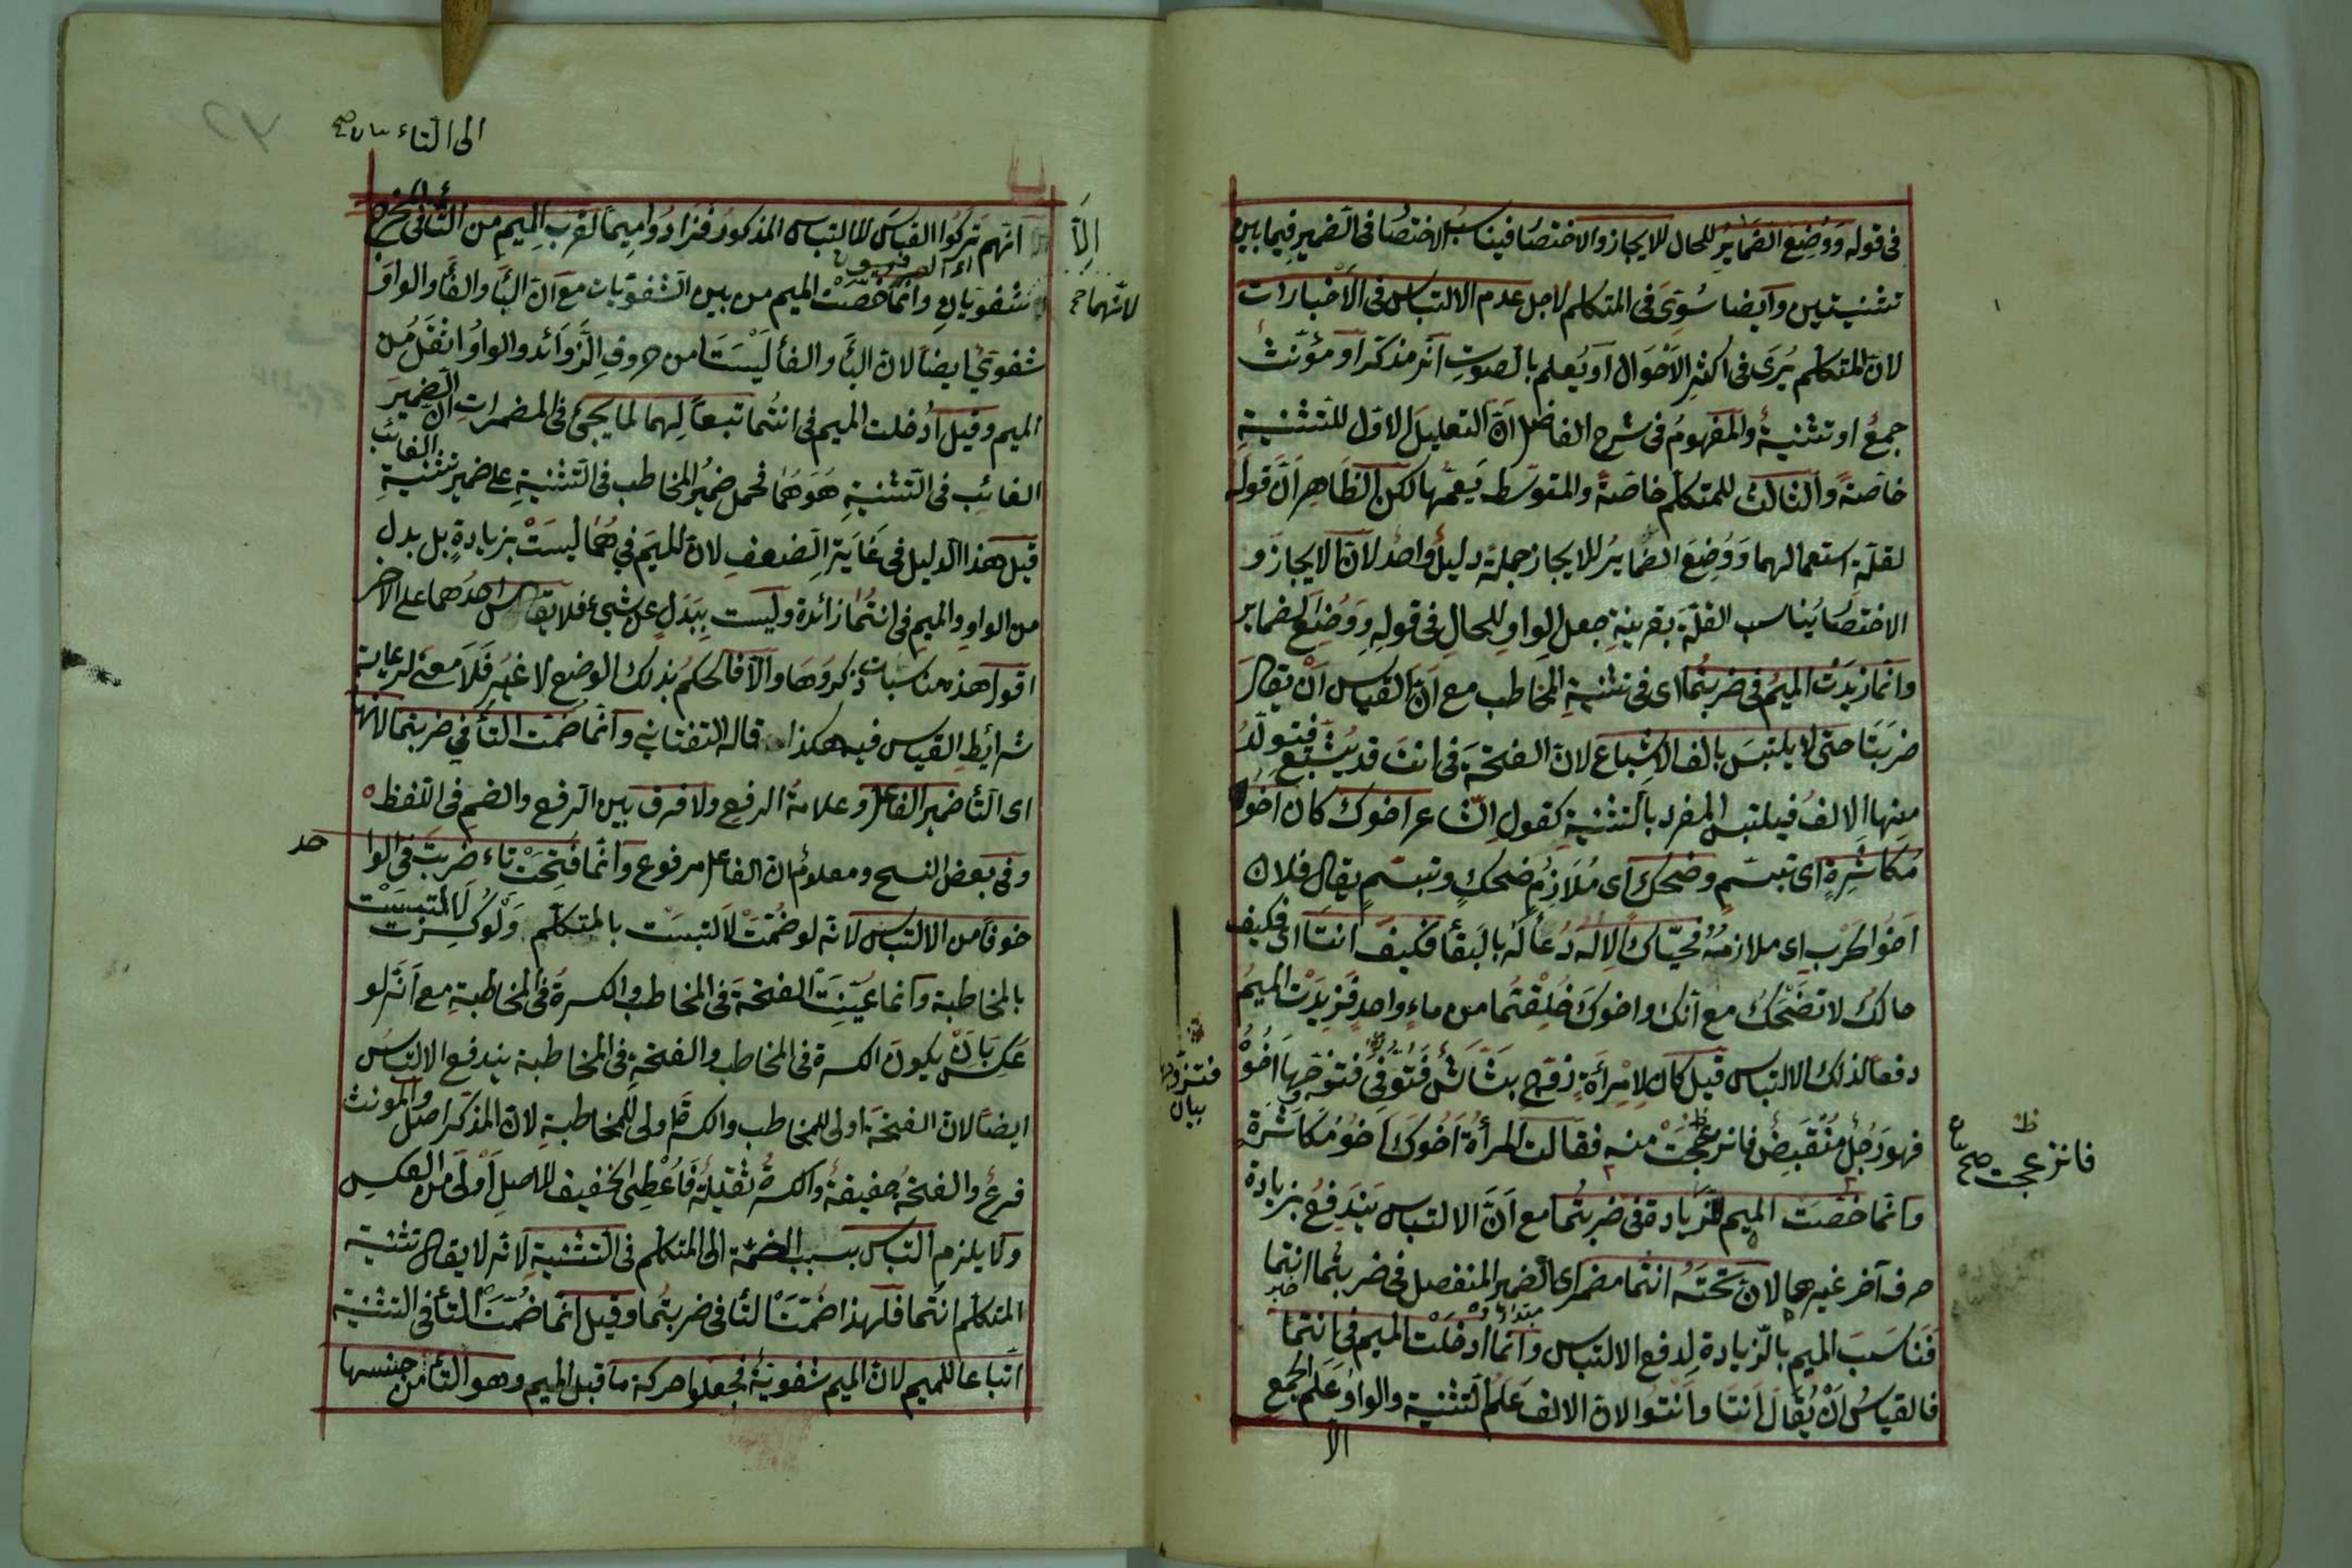 فى قوله وَوُضِعَ الضمايرُ للحال للايجاز والاختصا فيناسبُ الاختصا فى الضمير فيما بين
تثنيتين وايضا سُوِّىَ فى المتكلم لاجل عدم الالتباس فى الأخبارات
لان المتكلم يُرَى فى اكثر الاحْوال او يُعلم بالصوتِ انه مذكّر او مؤنّث
جمعٌ او تثنيةٌ والمفهومُ فى شرح الفاضل انّ التعليلَ الاوّل للتّثنيةِ
خاصّةً والثالث للمتكلم خاصّةً والمتوسّط يَعمّها لكن الظاهِرانّ قولَه
لقلّة استعمالهما وَوُضِعَ الضّمايرُ للايجاز جملة دليلٌ واحدٌ لانّ الايجازَ و
الاختصَا يُناسب القلّة بقرينةِ جعل الواو للحالِ فى قولهِ وَوُضِعَ الضماير
وانّما زيدَت الميمُ فى ضربتُما اى فى تثنيةِ المخاطب مع انّ القياس انْ يقالَ
ضربَتَا حتى لا يلتبسَ بالف الاشباع لانّ الفتحَةَ فى انتَ قد يُشْبَعُ فتولّدُ
منها الالفُ فيلتبس المفرد بالتثنيةِ كقولِ الشاعر اخوك كان اخُو
مُكَاشَرِةٍ اى تبسّم وضحك اى مُلَازِمُ ضحكٍ وتبسّمٍ يقال فلان
اخُوا لحَرْبِ اى ملازمُهُ فحيّاكَ الاله دُعأ لَهُ بالبقأ فكيفَ انتَا اى فكيف
حالكَ لا تضْحَكُ مع انّك واخوكَ خُلِقْتُما من ماءٍ واحدٍ فَزِيدَت الميمُ
دفعًا لذلك الالتباس قيل كان لامْرأةٍ زوج بشّاشٌ فتُوُفّى فتزوّجها اخُوْ
فهو رَجُلٌ مُنْقَبِضٌ فانزعجَتْ منه فقالت المرأةُ اخُوكَ اخُوْ مُكَاشَرَةٍ
وانّما خصّت الميم للزيادة فى ضربتُما مع انّ الالتباس يَندَفِعُ بزيادة
حرف آخر غيرها لانّ تحتَهُ انتما مضمر اى الضمير المنفصل فى ضربتُما انتما
فَنَاسَبَ الميم بالزّيادة لِدفع الالتباس وانّما اُدخلَت الميم فى انتما
فالقياسُ انْ يُقالَ اَنتَا وانْتُوا لان الالفَ عَلَمُ التثنية والواوُ عَلَم الجمعِ
الا
فانزعجت صح
فتزوّجها
بيان
الى التاء
اِلاّ
لانّهما
انّهم تركُوا القياسَ للالتباس المذكور فزادُوا ميمًا لقُربِ الميم من التّأ فى المخرج
شفويّانِ وانّما خُصّتْ الميم من بين الشّفويّات مع انّ البأَ والفأَ والواوَ
شفوىٌ ايضًا لان البأَ والفأ ليْسَتَا من حروفِ الزَّوائد والواوُ اثقلُ من
الميم وقيل اُدخلت الميم فى انتُما تبعًا لِهما لما يجئ فى المضمراتِ انّ الضميرَ
الغائب فى التثنيةِ هُوَهُمَا فحمل ضميُر المخاطب فى التثنيةِ على ضمير تثنيةِ الغائب
قيل هذا الدليل فى غَايَة الضعفِ لان للميَم فى هُمَا ليسَتْ بزيادةٍ بل بدل
من الواوِ والميم فى انتُمَا زائدة وليست بِبَدَلٍ عن شيءٍ فلا يقاس احدُهما على الاخر
اقول هذه مناسبات ذكروهَا والّا فالحكمُ بذلك الوضع لا غيرُ فَلَا معنى لرعاية
شرائطِ القياس فيه هكذا قاله التفتازانى وانّما ضمّت التأ فى ضربتما لانّها
اى التّأ ضميرُ الفاعل وعلامةُ الرفع ولا فرق بين الرفع والضم فى التّلفظ
وفى بعض النسخ ومعلومٌ ان الفاعل مرفوع وانّما فُتِحَتْ تاء ضربتَ فى الوا
حد
خوفًا من الالتباس لانّه لو ضُمّتْ لَالتبسَتْ بالمتكلّم وَلَوْ كسِرَتْ لَالْتبسَتْ
بالمخاطبة وانما عُيّنِتَ الفتحَة فى المخاطب والكسرةُ فى المخاطبةِ مع انّه لو
عَكسَ بانْ يكونَ الكسرة فى المخاطب والفتحةِ فى المخاطبة يندفع الالتباسُ
ايضًا لان الفتحَةَ اولى للمخاطب والكسرة اولى للمخاطبةِ لانّ المذكّر اصلٌ والمؤنث
فرعٌ والفتحةُ خفيفةٌ والكسرةُ ثقيلةٌ فَاُعْطِىَ الخفيف للاصلِ اَوْلى من العكسِ
ولا يلزم التباس بسبب الضمّة الى المتكلّم فى التثنيةِ لانّه لا يقال تثنية
المتكلم انتما فلهذا ضُمّت التأ فى ضربتُما وقيل انّما ضُمّتَ التأ فى التثنية
اتباعا للميم لانّ الميم شفويّةٌ فجعلوا حركة ما قبل الميم وهو التّأ من جنسها